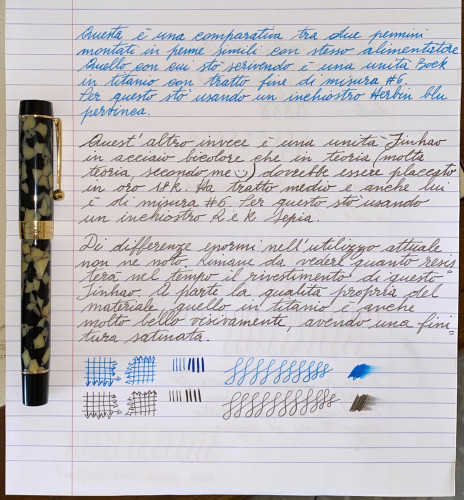 Questa è una comparativa tra due pennini
montati in penne simili con stesso alimentatore
Quello con cui sto scrivendo è una unità Bock
in titanio con tratto fine di misura #6.
Per questo sto usando un inchiostro Herbin blu
pervinca.
Quest'altro invece è una unità Jinhao
in acciaio bicolore che in teoria (molta
teoria, secondo me ☺) dovrebbe essere placcato
in oro 18k. Ha tratto medio e anche lui
è di misura #6. Per questo sto usando
un inchiostro R e K Sepia.
Di differenze enormi nell'utilizzo attuale
non ne noto. Rimane da vedere quanto resis
terà nel tempo il rivestimento di questo
Jinhao. A parte la qualità propria del
materiale, quello in titanio è anche
molto bello visivamente, avendo una fini=
tura satinata.